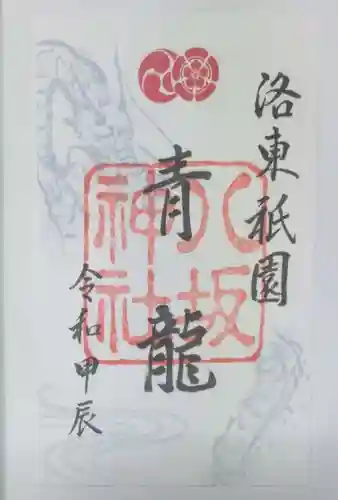 洛東祇園
青龍
八坂神社
令和甲辰